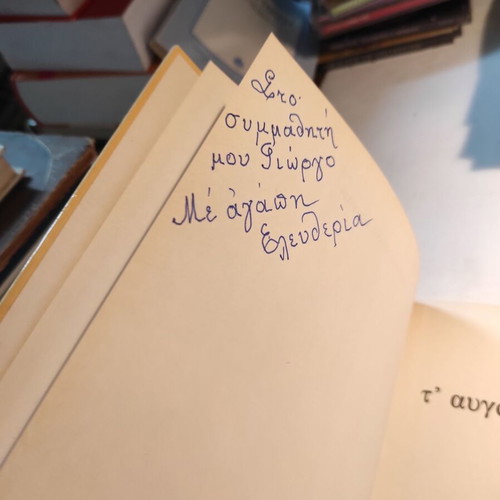 Στο
συμμαθητή
μου Γιώργο
Μέ ἀγάπη
Ελευθερία
τ' αυγο